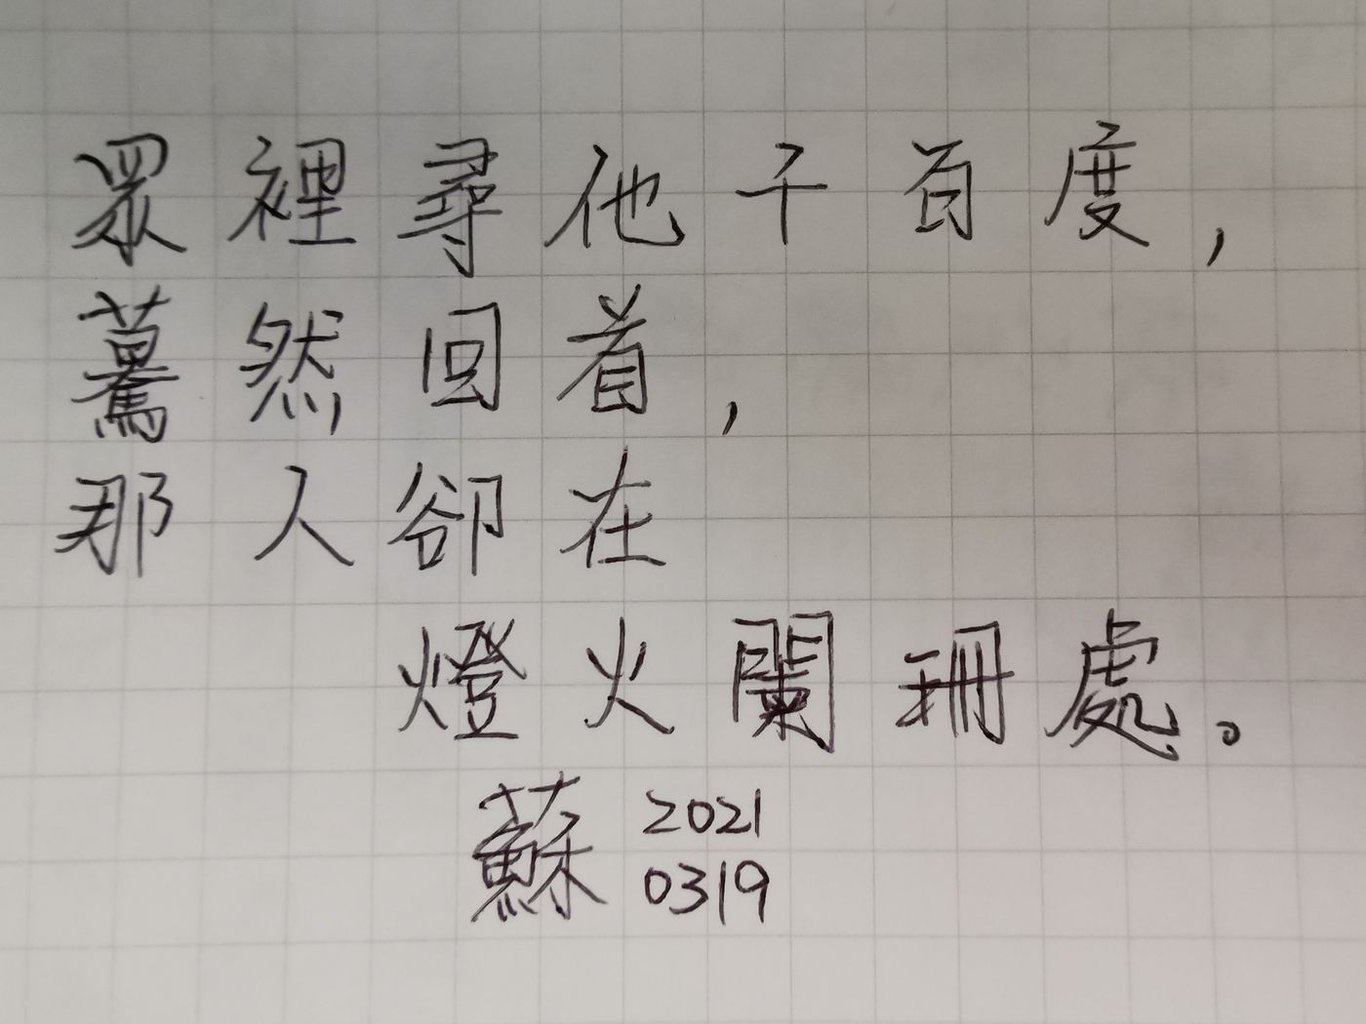 眾裡尋他千百度，
驀然回首，
那人卻在
燈火闌珊處。
蘇 2021
0319